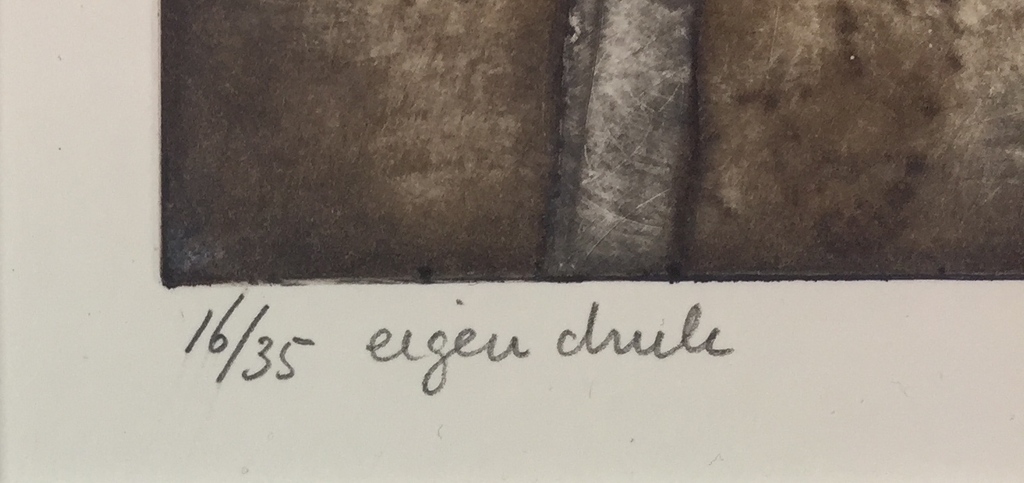 16/35 eigen druk